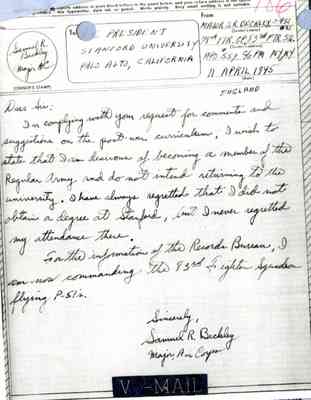 To:
PRESIDENT
STANFORD UNIVERSITY
PALO ALTO, CALIFORNIA
Samuel R.
Beckley
Major AC
From
MAJOR S.R. BECKLEY
APO 557 % PM NY, NY.
11 APRIL 1945
ENGLAND
Dear Sir:
In complying with your request for comments and
suggestions on the post war curriculum, I wish to
state that I am desirous of becoming a member of the
Regular Army and do not intend returning to the
university. I have always regretted that I did not
obtain a degree at Stanford, but I never regretted
my attendance there.
For the information of the Records Bureau, I
am now commanding the 93rd Fighter Squadron
flying P-51's.
Sincerely,
Samuel R. Beckley
Major Air Corps
V-MAIL